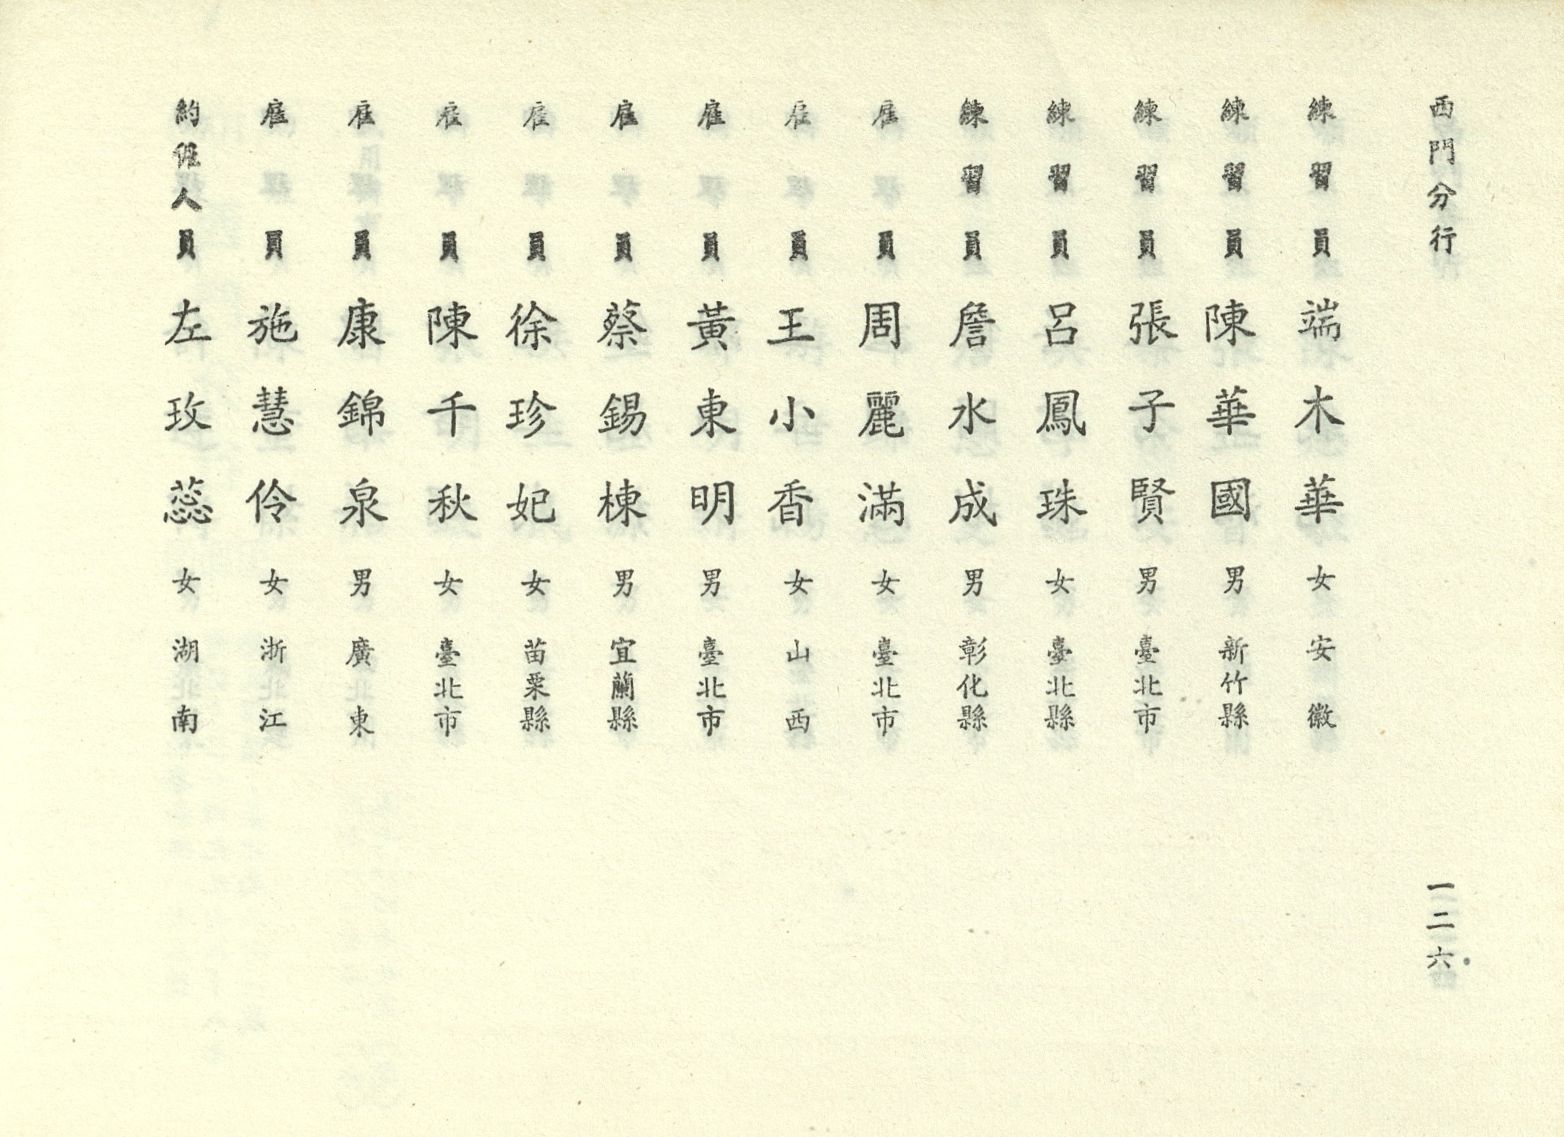 西門分行 一二六
練習員 端木華 女 安徽
練習員 陳華國 男 新竹縣
練習員 張子賢 男 臺北市
練習員 呂鳳珠 女 臺北縣
練習員 詹水成 男 彰化縣
雇員 周麗滿 女 臺北市
雇員 王小香 女 山西
雇員 黃東明 男 臺北市
雇員 蔡錫棟 男 宜蘭縣
雇員 徐珍妃 女 苗栗縣
雇員 陳千秋 女 臺北市
雇員 康錦泉 男 廣東
雇員 施慧伶 女 浙江
約僱人員 左玫蕊 女 湖南